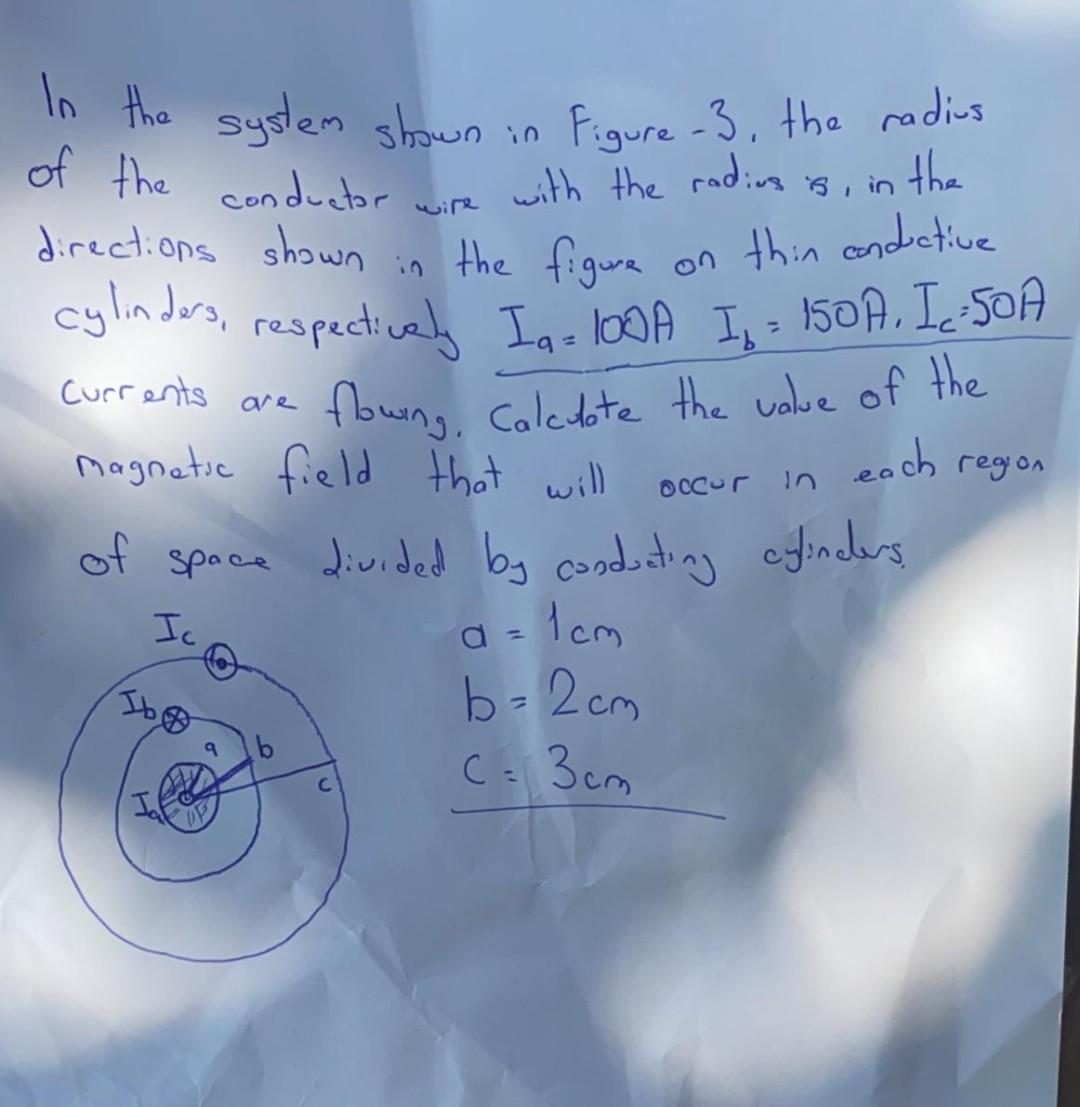 In the system shown in Figure-3, the radius
of the conductor wire with the radius is, in the
directions shown in the figure on thin conductive
cylinders, respectively Ia = 100A Ib = 150A, Ic = 50A
currents are flowing. Calculate the value of the
magnetic field that will occur in each region
of space divided by conducting cylinders.
a = 1cm
b = 2cm
c = 3cm
Ic
Ib
a b
c
Ia